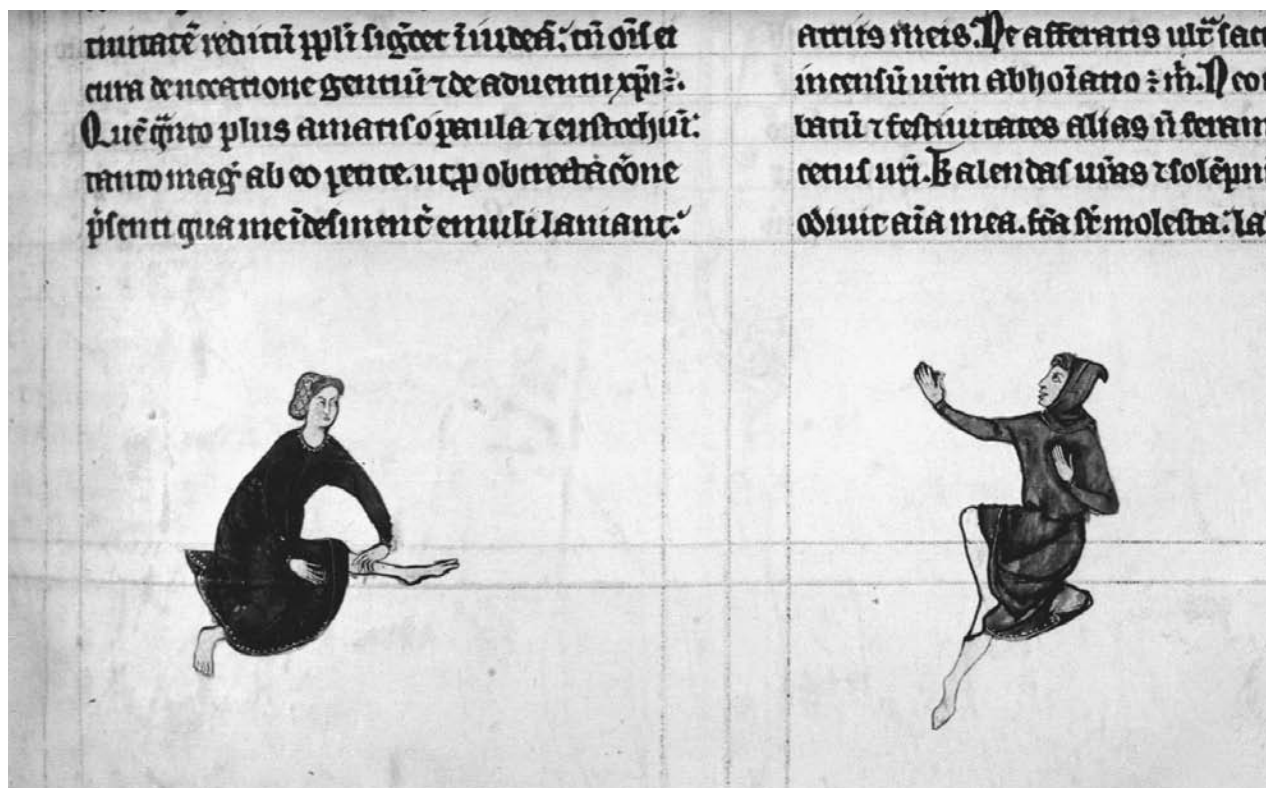 tiuitatē reditū ppl̄i sig̃cet ī iudeā: cū oīs ei
cura de uocatione gentiū ⁊ de aduentu xp̄i:.
Quē q̃nto plus amatis o paula ⁊ eustochiū:
tanto mag̃ ab eo petite. ut ꝓ obtrectac̄one
p̃senti qua me īdesinent̃ emuli laniant:
atriis meis. Ne afferatis ult̃
incensū
⁊ festiuitates alias ñ feram
cetus ur̄i. Kalendas ur̄as ⁊ solēpni
odiuit aīa mea. fc̄a st̄ molesta: la